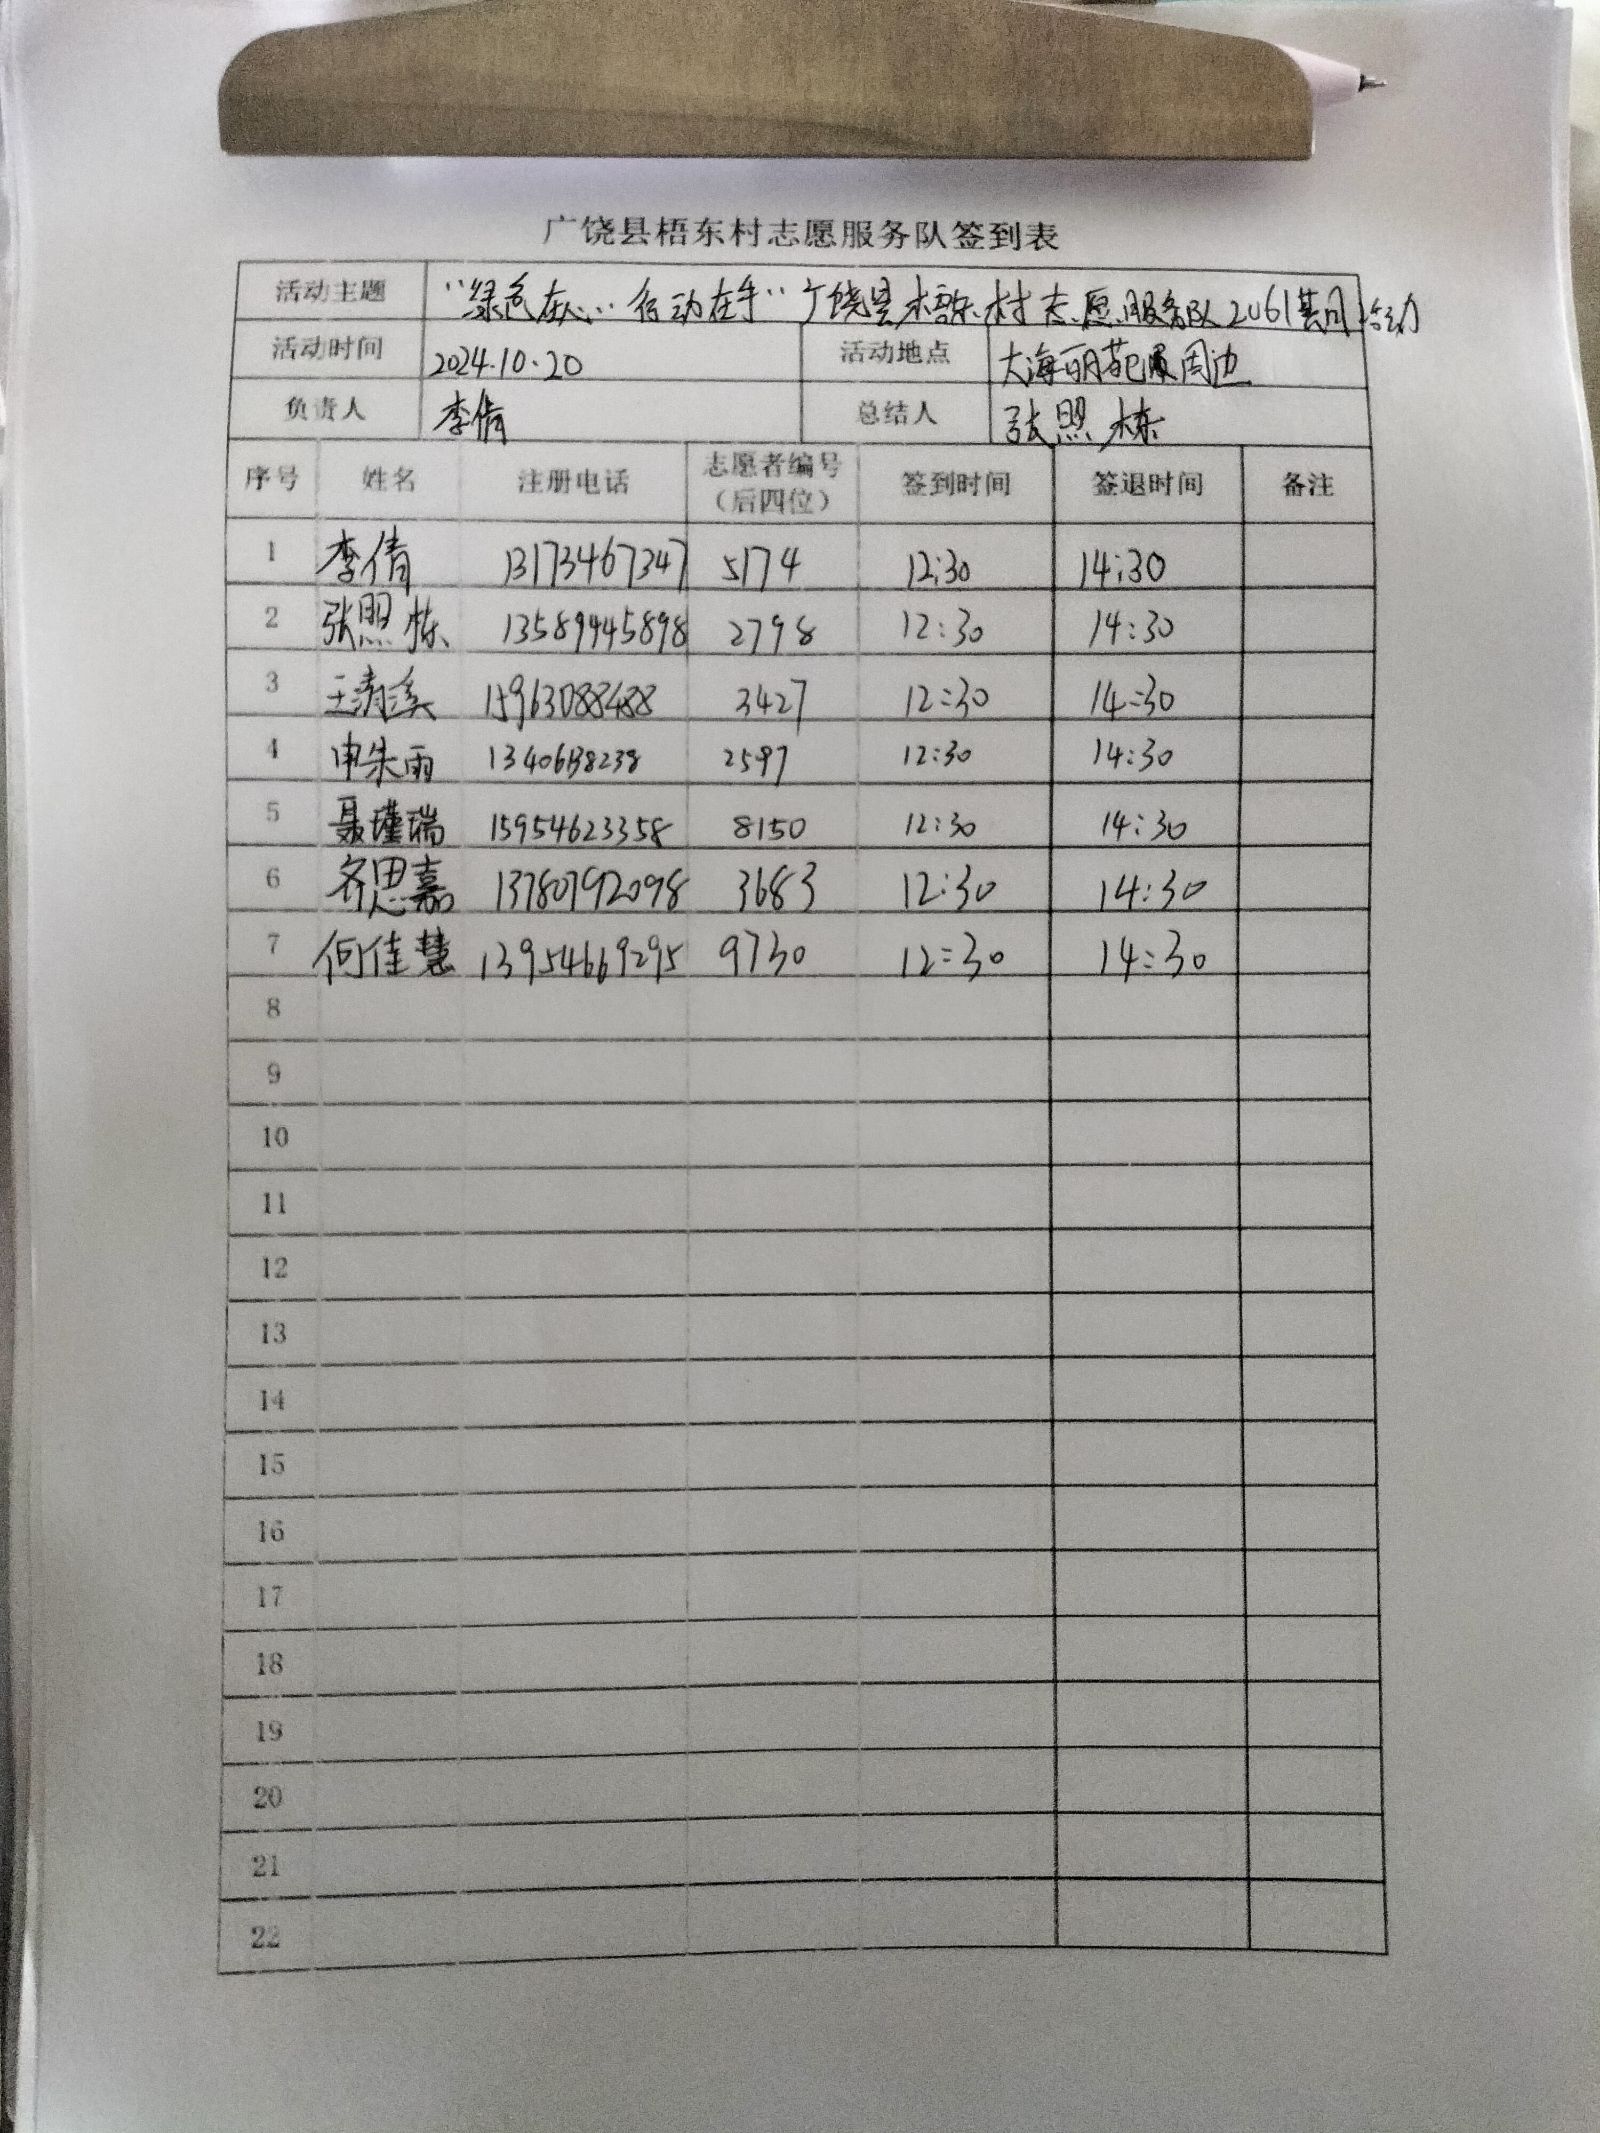 广饶县梧东村志愿服务队签到表
活动主题 “绿色在心..行动在手”广饶县梧东村志愿服务队2061其月活动
活动时间 2024.10.20 活动地点 大海丽苑周边
负责人 李倩 总结人 张照栋
序号 姓名 注册电话 志愿者编号（后四位） 签到时间 签退时间 备注
1 李倩 13173467347 5174 12:30 14:30
2 张照栋 13589445898 2798 12:30 14:30
3 王清溪 15963088488 3427 12:30 14:30
4 申朱雨 2597 12:30 14:30
5 聂瑾瑞 15954623358 8150 12:30 14:30
6 齐思嘉 13780792098 3683 12:30 14:30
7 何佳慧 13954669295 9730 12:30 14:30
8
9
10
11
12
13
14
15
16
17
18
19
20
21
22